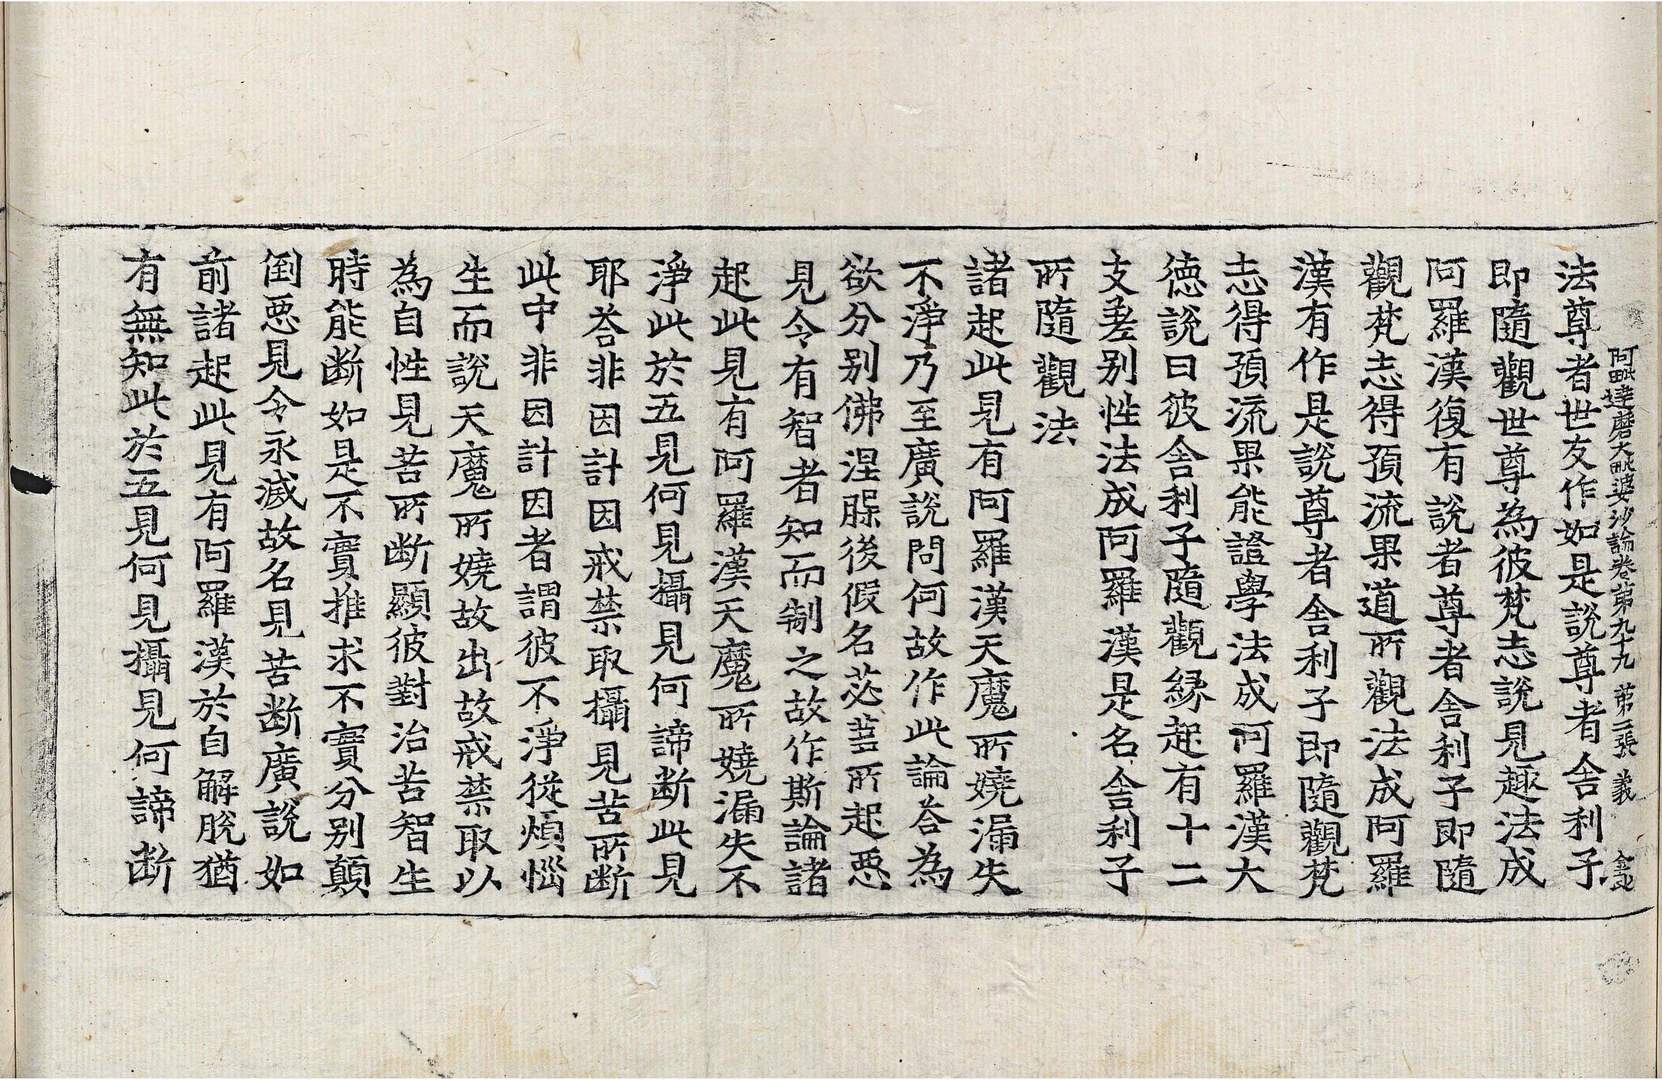 阿毗達磨大毗婆沙論卷第九十九 第二張 義
法尊者世友作如是說尊者舍利子
即隨觀世尊為彼梵志說見趣法成
阿羅漢復有說者尊者舍利子即隨
觀梵志得預流果道所觀法成阿羅
漢有作是說尊者舍利子即隨觀梵
志得預流果能證學法成阿羅漢大
德說曰彼舍利子隨觀緣起有十二
支差别性法成阿羅漢是名舍利子
所隨觀法
諸起此見有阿羅漢天魔所嬈漏失
不淨乃至廣說問何故作此論答為
欲分别佛涅槃後假名苾芻所起惡
見令有智者知而制之故作斯論諸
起此見有阿羅漢天魔所嬈漏失不
淨此於五見何見攝見何諦斷此見
耶答非因計因戒禁取攝見苦所斷
此中非因計因者謂彼不淨從煩惱
生而說天魔所嬈故出故戒禁取以
為自性見苦所斷顯彼對治苦智生
時能斷如是不實推求不實分别顛
倒惡見令永滅故名見苦斷廣說如
前諸起此見有阿羅漢於自解脫猶
有無知此於五見何見攝見何諦斷